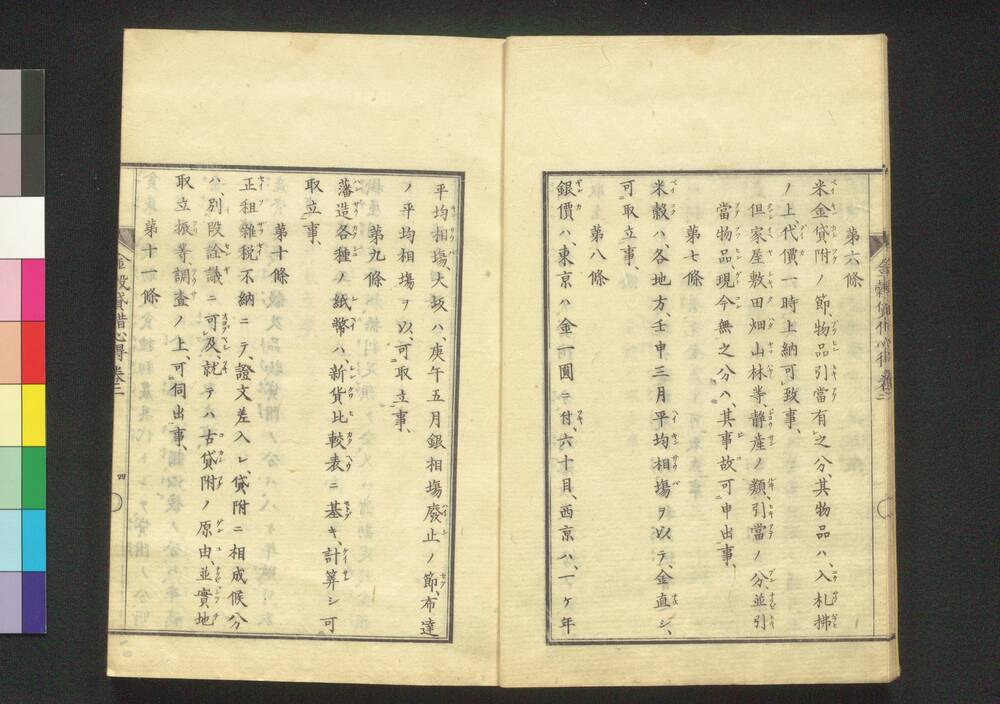 第六條
米金貸附ノ節、物品引當有之分、其物品ハ、入札拂
ノ上代價一時上納可致事、
但家屋敷田畑山林等、靜産ノ類引當ノ分、並引
當物品現今無之分ハ、其事故可申出事、
第七條
米穀ハ、各地方、壬申三月平均相塲ヲ以テ、金直シ、
可取立事、
第八條
銀價ハ、東京ハ金一圓ニ付、六十目、西京ハ、一ヶ年
平均相塲、大坂ハ、庚午五月銀相塲廢止ノ節、布達
ノ平均相塲ヲ以、可取立事、
第九條
藩造各種ノ紙幣ハ、新貨比較表ニ基キ、計算シ可
取立事、
第十條
正租雜税不納ニテ、證文差入レ、貸附ニ相成候分
ハ、別段詮議ニ可及、就テハ古貸附ノ原由、並實地
取立振等、調査ノ上、可伺出事、
第十一條
金穀貸借心得 卷二
四